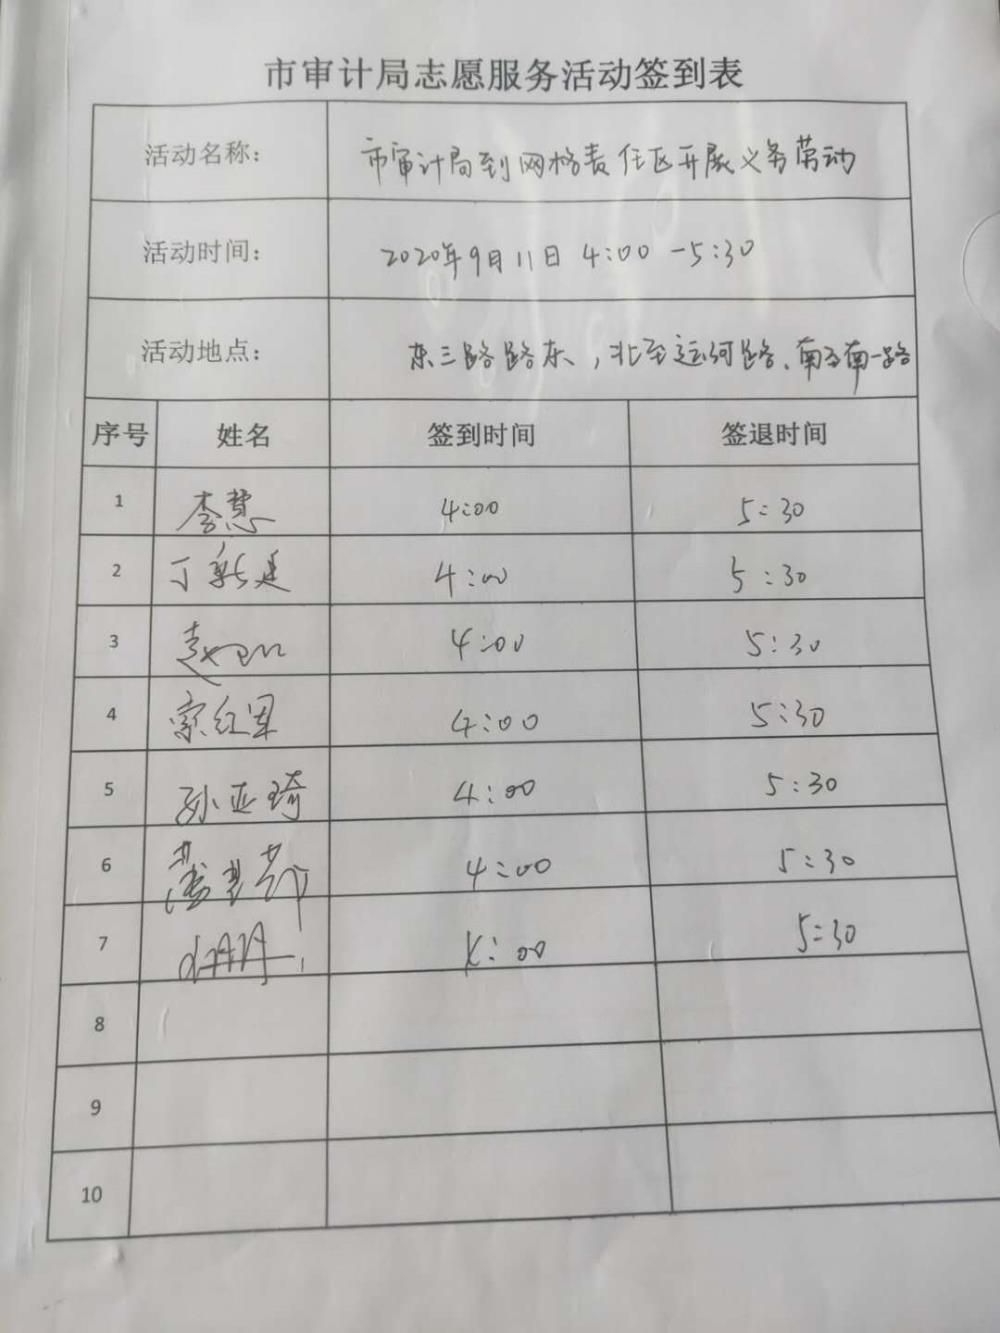 市审计局志愿服务活动签到表
活动名称： 市审计局到网格责任区开展义务劳动
活动时间： 2020年9月11日 4:00-5:30
活动地点： 东三路路东，北至运河路、南至南一路
序号 姓名 签到时间 签退时间
1 李慧 4:00 5:30
2 丁 4:00 5:30
3 赵 4:00 5:30
4 索红军 4:00 5:30
5 孙亚琦 4:00 5:30
6 4:00 5:30
7 4:00 5:30
8
9
10